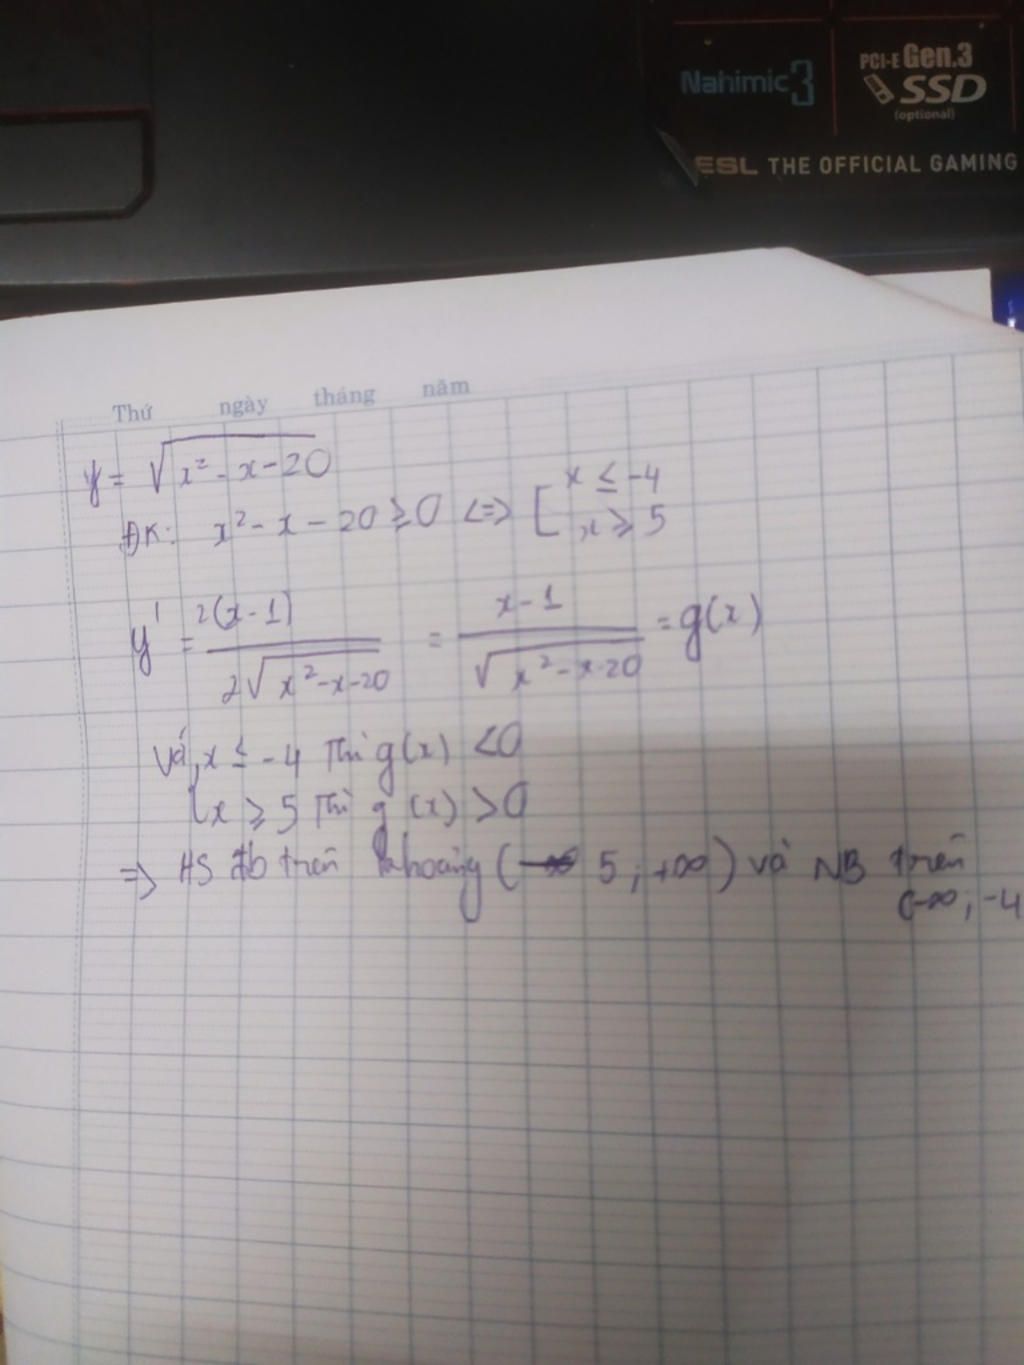 Nahimic 3
PCI-E Gen.3
SSD
(optional)
ESL THE OFFICIAL GAMING
Thứ ngày tháng năm
y = √(x² - x - 20)
ĐK: x² - x - 20 ≥ 0 <=> [ x ≤ -4
x ≥ 5
y' = 2(x - 1) / 2√(x² - x - 20) = x - 1 / √(x² - x - 20) = g(x)
Với x ≤ -4 thì g(x) < 0
x ≥ 5 thì g(x) > 0
=> HS đb trên khoảng (5 ; +∞) và NB trên
(-∞ ; -4